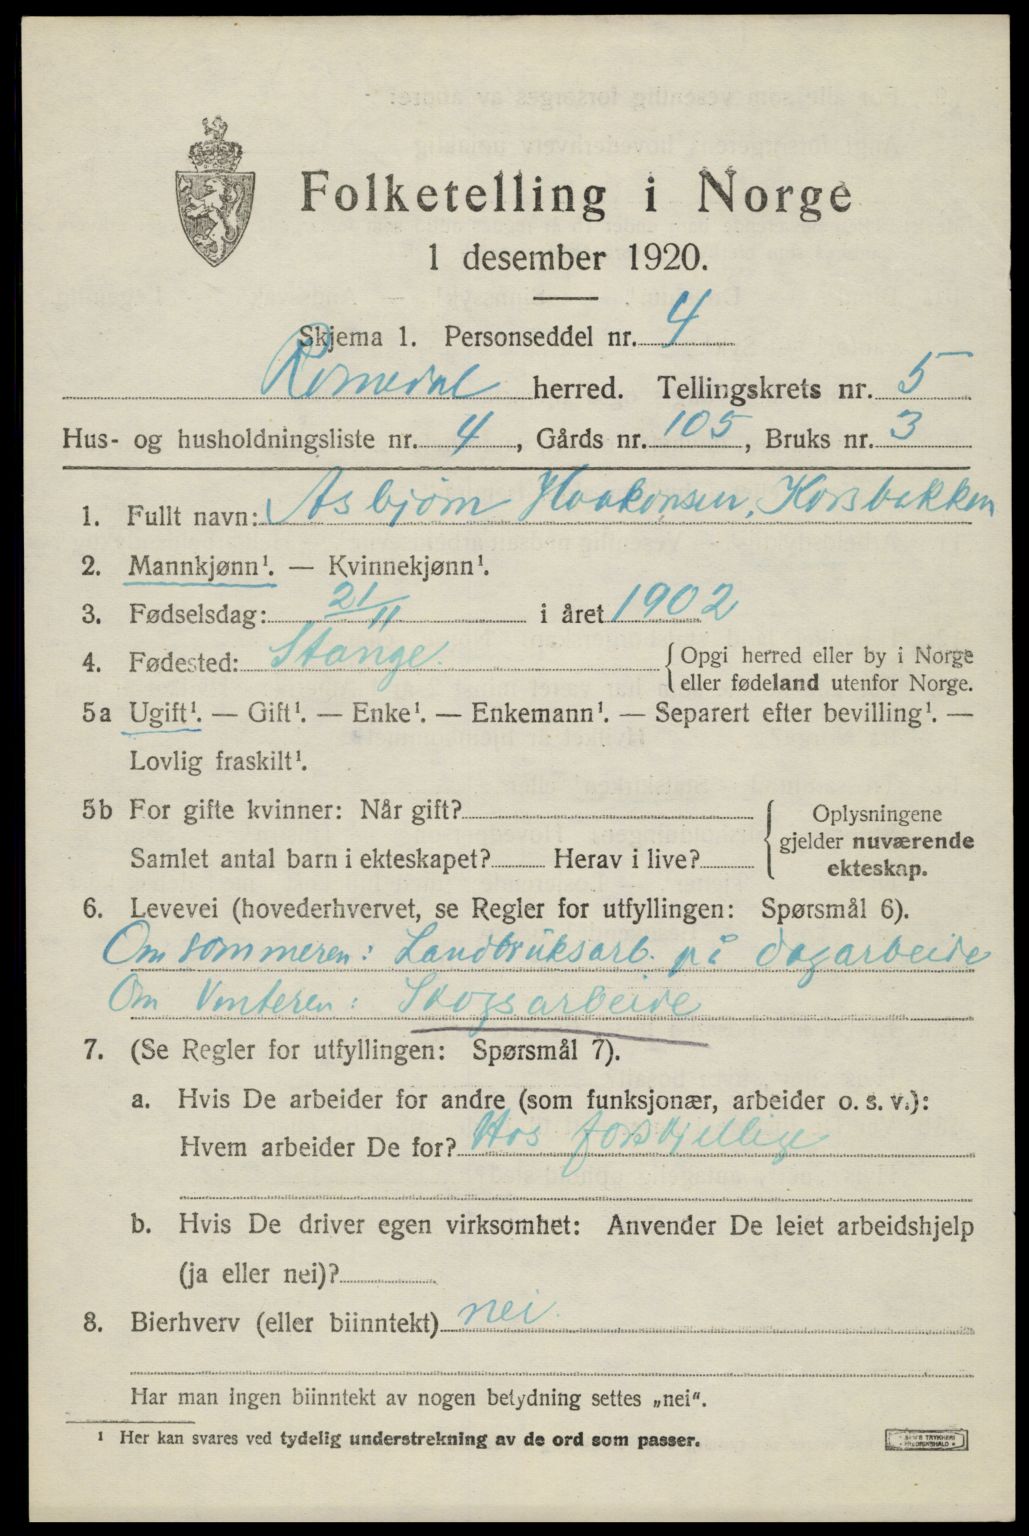 Folketelling i Norge
1 desember 1920.
Skjema 1. Personseddel nr. 4
Romedal herred. Tellingskrets nr. 5
Hus- og husholdningsliste nr. 4, Gårds nr. 105, Bruks nr. 3
1. Fullt navn: Asbjørn Haakonsen, Korsbakken
2. Mannkjønn¹. — Kvinnekjønn¹.
3. Fødselsdag: 21/11 i året 1902
4. Fødested: Stange. { Opgi herred eller by i Norge
eller fødeland utenfor Norge.
5a Ugift¹. — Gift¹. — Enke¹. — Enkemann¹. — Separert efter bevilling¹. —
Lovlig fraskilt¹.
5b For gifte kvinner: Når gift?
Samlet antal barn i ekteskapet? Herav i live?
{ Oplysningene
gjelder nuværende
ekteskap.
6. Levevei (hovederhvervet, se Regler for utfyllingen: Spørsmål 6).
Om sommeren: Landbruksarb. på dagarbeide
Om Vinteren: Skogsarbeide
7. (Se Regler for utfyllingen: Spørsmål 7).
a. Hvis De arbeider for andre (som funksjonær, arbeider o. s. v.):
Hvem arbeider De for? Hos forskjellige
b. Hvis De driver egen virksomhet: Anvender De leiet arbeidshjelp
(ja eller nei)?
8. Bierhverv (eller biinntekt) nei.
Har man ingen biinntekt av nogen betydning settes „nei“.
¹ Her kan svares ved tydelig understrekning av de ord som passer.